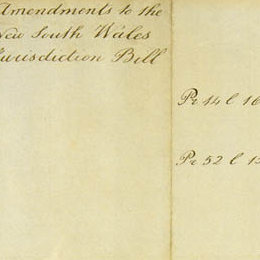 Amendments to the
New South Wales
Jurisdiction Bill
Pr 14 l 16
Pr 52 l